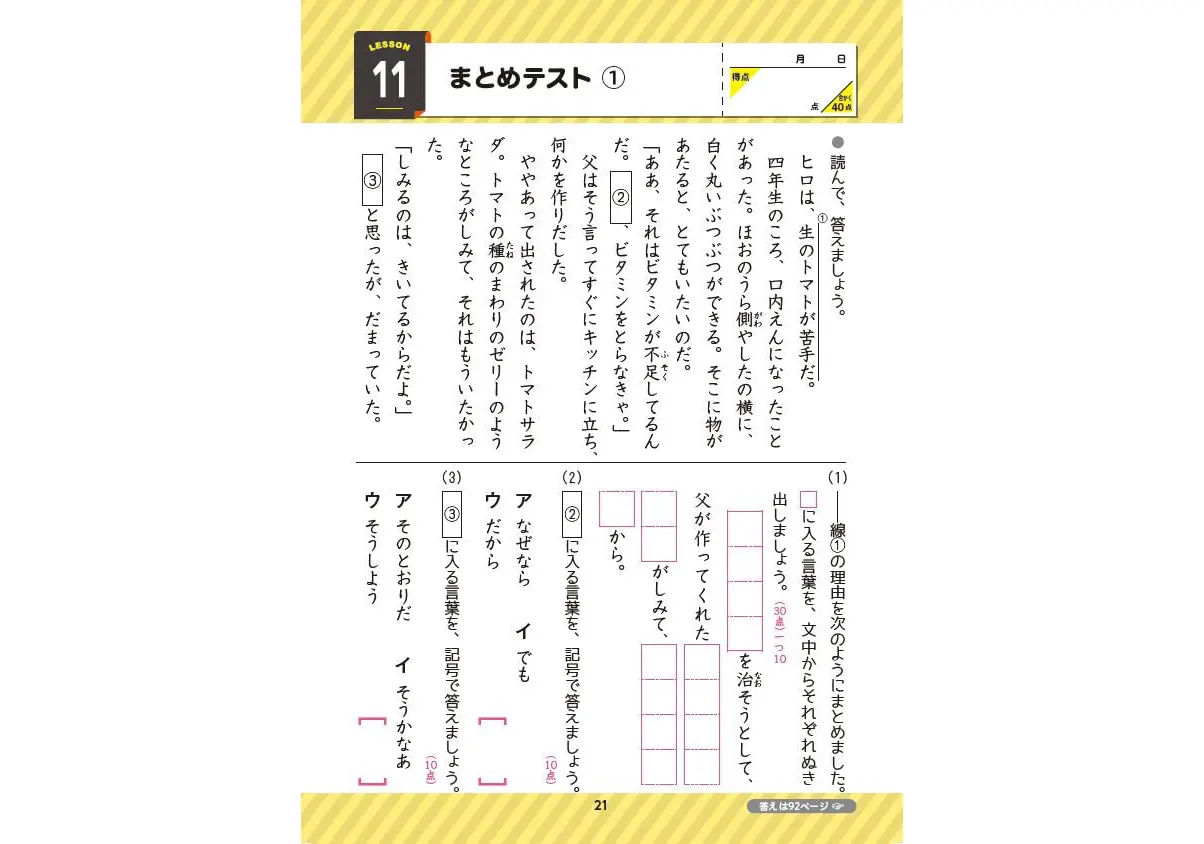 LESSON
11
まとめテスト ①
月 日
得点
点
ごうかく
40点
● 読んで、答えましょう。
ヒロは、①生のトマトが苦手だ。
四年生のころ、口内えんになったこと
があった。ほおのうら側やしたの横に、
がわ
白く丸いぶつぶつができる。そこに物が
あたると、とてもいたいのだ。
「ああ、それはビタミンが不足してるん
ふそく
だ。②、ビタミンをとらなきゃ。」
父はそう言ってすぐにキッチンに立ち、
何かを作りだした。
ややあって出されたのは、トマトサラ
ダ。トマトの種のまわりのゼリーのよう
たね
なところがしみて、それはもういたかっ
た。
「しみるのは、きいてるからだよ。」
③と思ったが、だまっていた。
(1)
――線①の理由を次のようにまとめました。
□に入る言葉を、文中からそれぞれぬき
出しましょう。(30点)一つ10
を治そうとして、
なお
父が作ってくれた
がしみて、
から。
(2)
②に入る言葉を、記号で答えましょう。
(10点)
ア なぜなら イ でも
ウ だから
(3)
③に入る言葉を、記号で答えましょう。
(10点)
ア そのとおりだ イ そうかなあ
ウ そうしよう
21
答えは92ページ☞